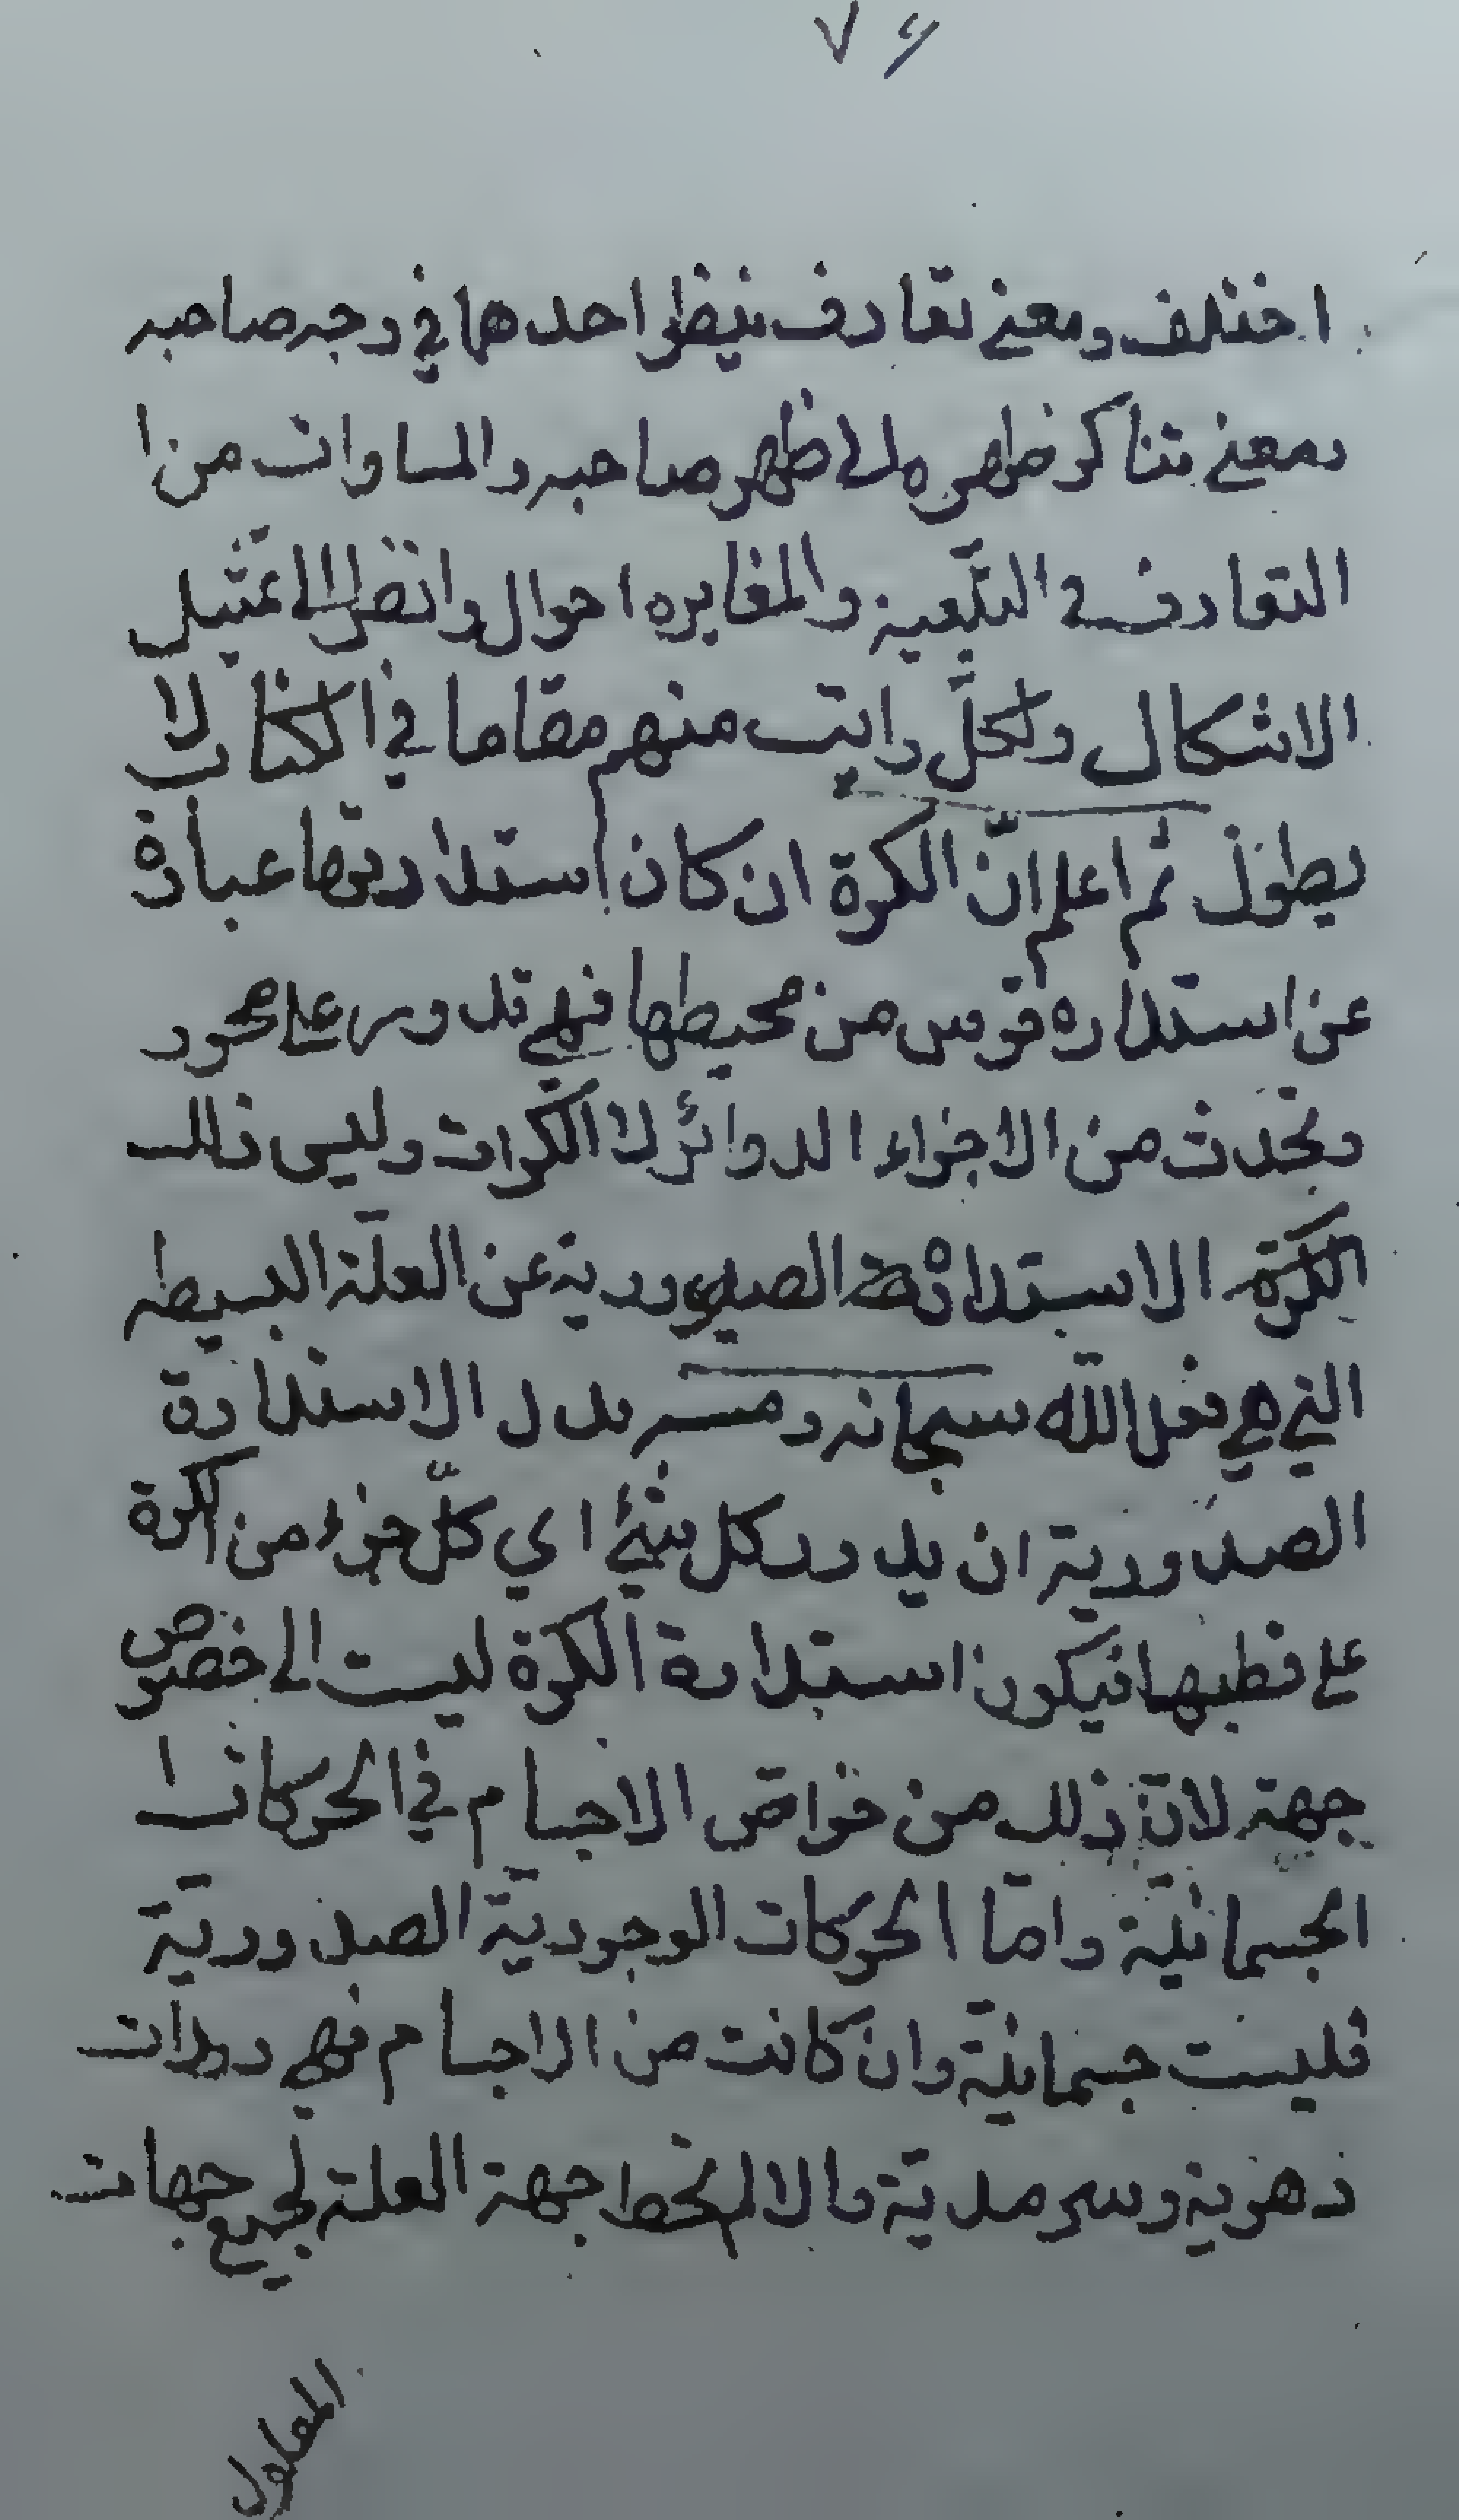 ٧٤
اختلف ومعنى تعارف ينظر احدهما في وجه صاحبه
ومعنى تناكر ظهره الى ظهر صاحبه والمساوات من ا
التعارف في التبعية والمغايره احوال وانظر الى تمثيل
الاشكال ولكل رايت منهم مقاما في الكتاب لا
بطول ثم اعلم ان الكرة ان كان استدارتها عبارة
عن استداره قوس من محيطها فهي تدور على محور
وتحدث من الاجزاء الدوائر لا الكرات وليس ذلك
الكرة الاستدارة الصدورية عن العلة البسيطه
التي هي فعل الله سبحانه الاستدارة
الصدورية ان يدور كل شئ اي كلّ جزء من الكرة
على قطبها فيكون استدارة الكرة ليست الى خصوص
جهة لانّ ذلك من خواصّ الاجسام في الحركات ا
الجسمانيّة وامّا الحركات الوجوديّة الصدوريّة
فليست جسمانيّة وان كانت من الاجسام فهي دورات
دهرية وسرمديّة والا لم تحط جهة العلة لجميع جهات
المعلول